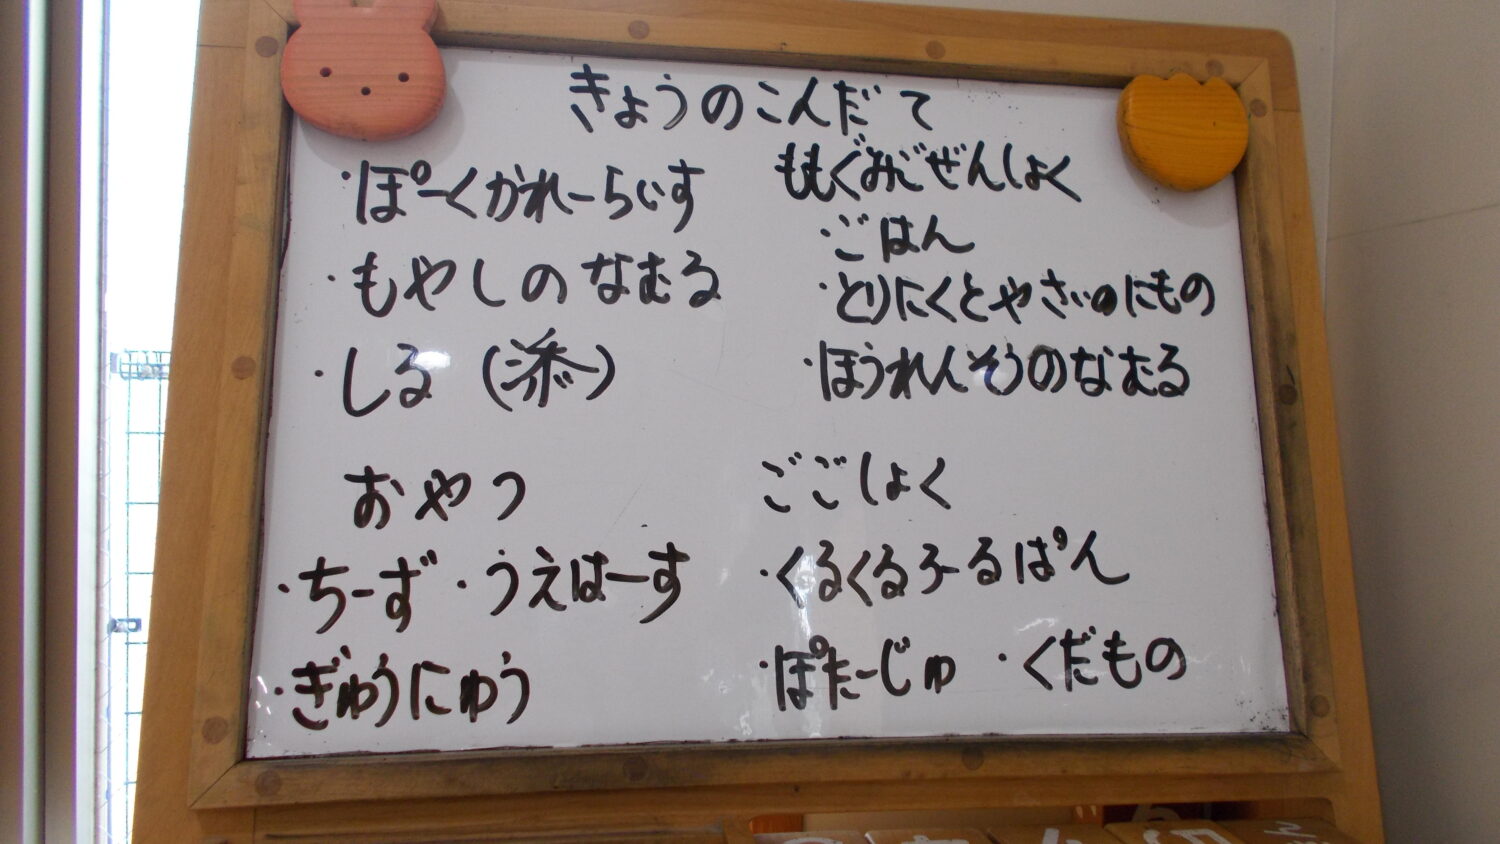 きょうのこんだて
・ぽーくかれーらいす
・もやしのなむる
・しる(添)
おやつ
・ちーず ・うえはーす
・ぎゅうにゅう
ももぐみごぜんしょく
・ごはん
・とりにくとやさいのにもの
・ほうれんそうのなむる
ごごしょく
・くるくるろーるぱん
・ぽたーじゅ ・くだもの